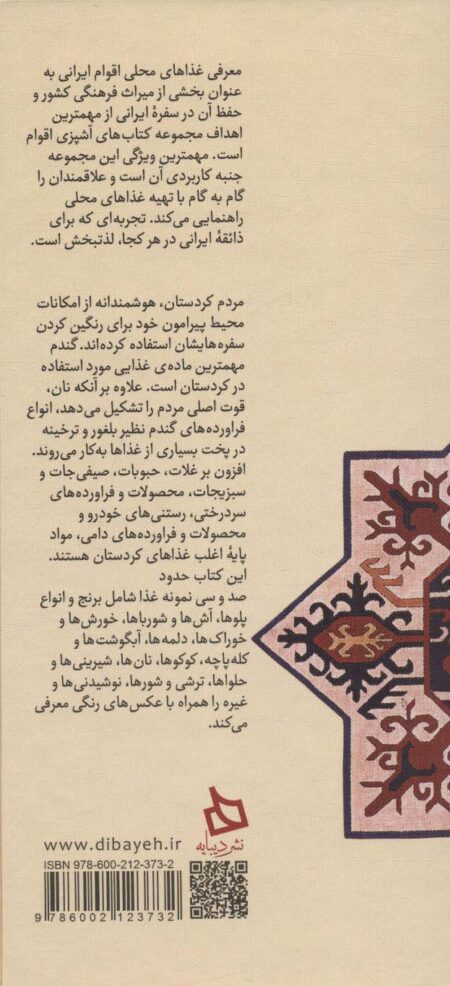 معرفی غذاهای محلی اقوام ایرانی به
عنوان بخشی از میراث فرهنگی کشور و
حفظ آن در سفرهٔ ایرانی از مهمترین
اهداف مجموعه کتاب‌های آشپزی اقوام
است. مهمترین ویژگی این مجموعه
جنبه کاربردی آن است و علاقمندان را
گام به گام با تهیه غذاهای محلی
راهنمایی می‌کند. تجربه‌ای که برای
ذائقهٔ ایرانی در هر کجا، لذتبخش است.
مردم کردستان، هوشمندانه از امکانات
محیط پیرامون خود برای رنگین کردن
سفره‌هایشان استفاده کرده‌اند. گندم
مهمترین ماده‌ی غذایی مورد استفاده
در کردستان است. علاوه بر آنکه نان،
قوت اصلی مردم را تشکیل می‌دهد، انواع
فراورده‌های گندم نظیر بلغور و ترخینه
در پخت بسیاری از غذاها به‌کار می‌روند.
افزون بر غلات، حبوبات، صیفی‌جات و
سبزیجات، محصولات و فراورده‌های
سردرختی، رستنی‌های خودرو و
محصولات و فراورده‌های دامی، مواد
پایهٔ اغلب غذاهای کردستان هستند.
این کتاب حدود
صد و سی نمونه غذا شامل برنج و انواع
پلوها، آش‌ها و شورباها، خورش‌ها و
خوراک‌ها، دلمه‌ها، آبگوشت‌ها و
کله‌پاچه، کوکوها، نان‌ها، شیرینی‌ها و
حلواها، ترشی و شورها، نوشیدنی‌ها و
غیره را همراه با عکس‌های رنگی معرفی
می‌کند.
نشر دیبایه
www.dibayeh.ir
ISBN 978-600-212-373-2
9 786002 123732